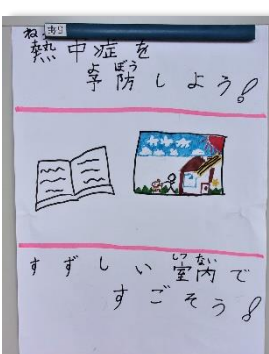 熱中症を
予防しよう!
すずしい室内で
すごそう!